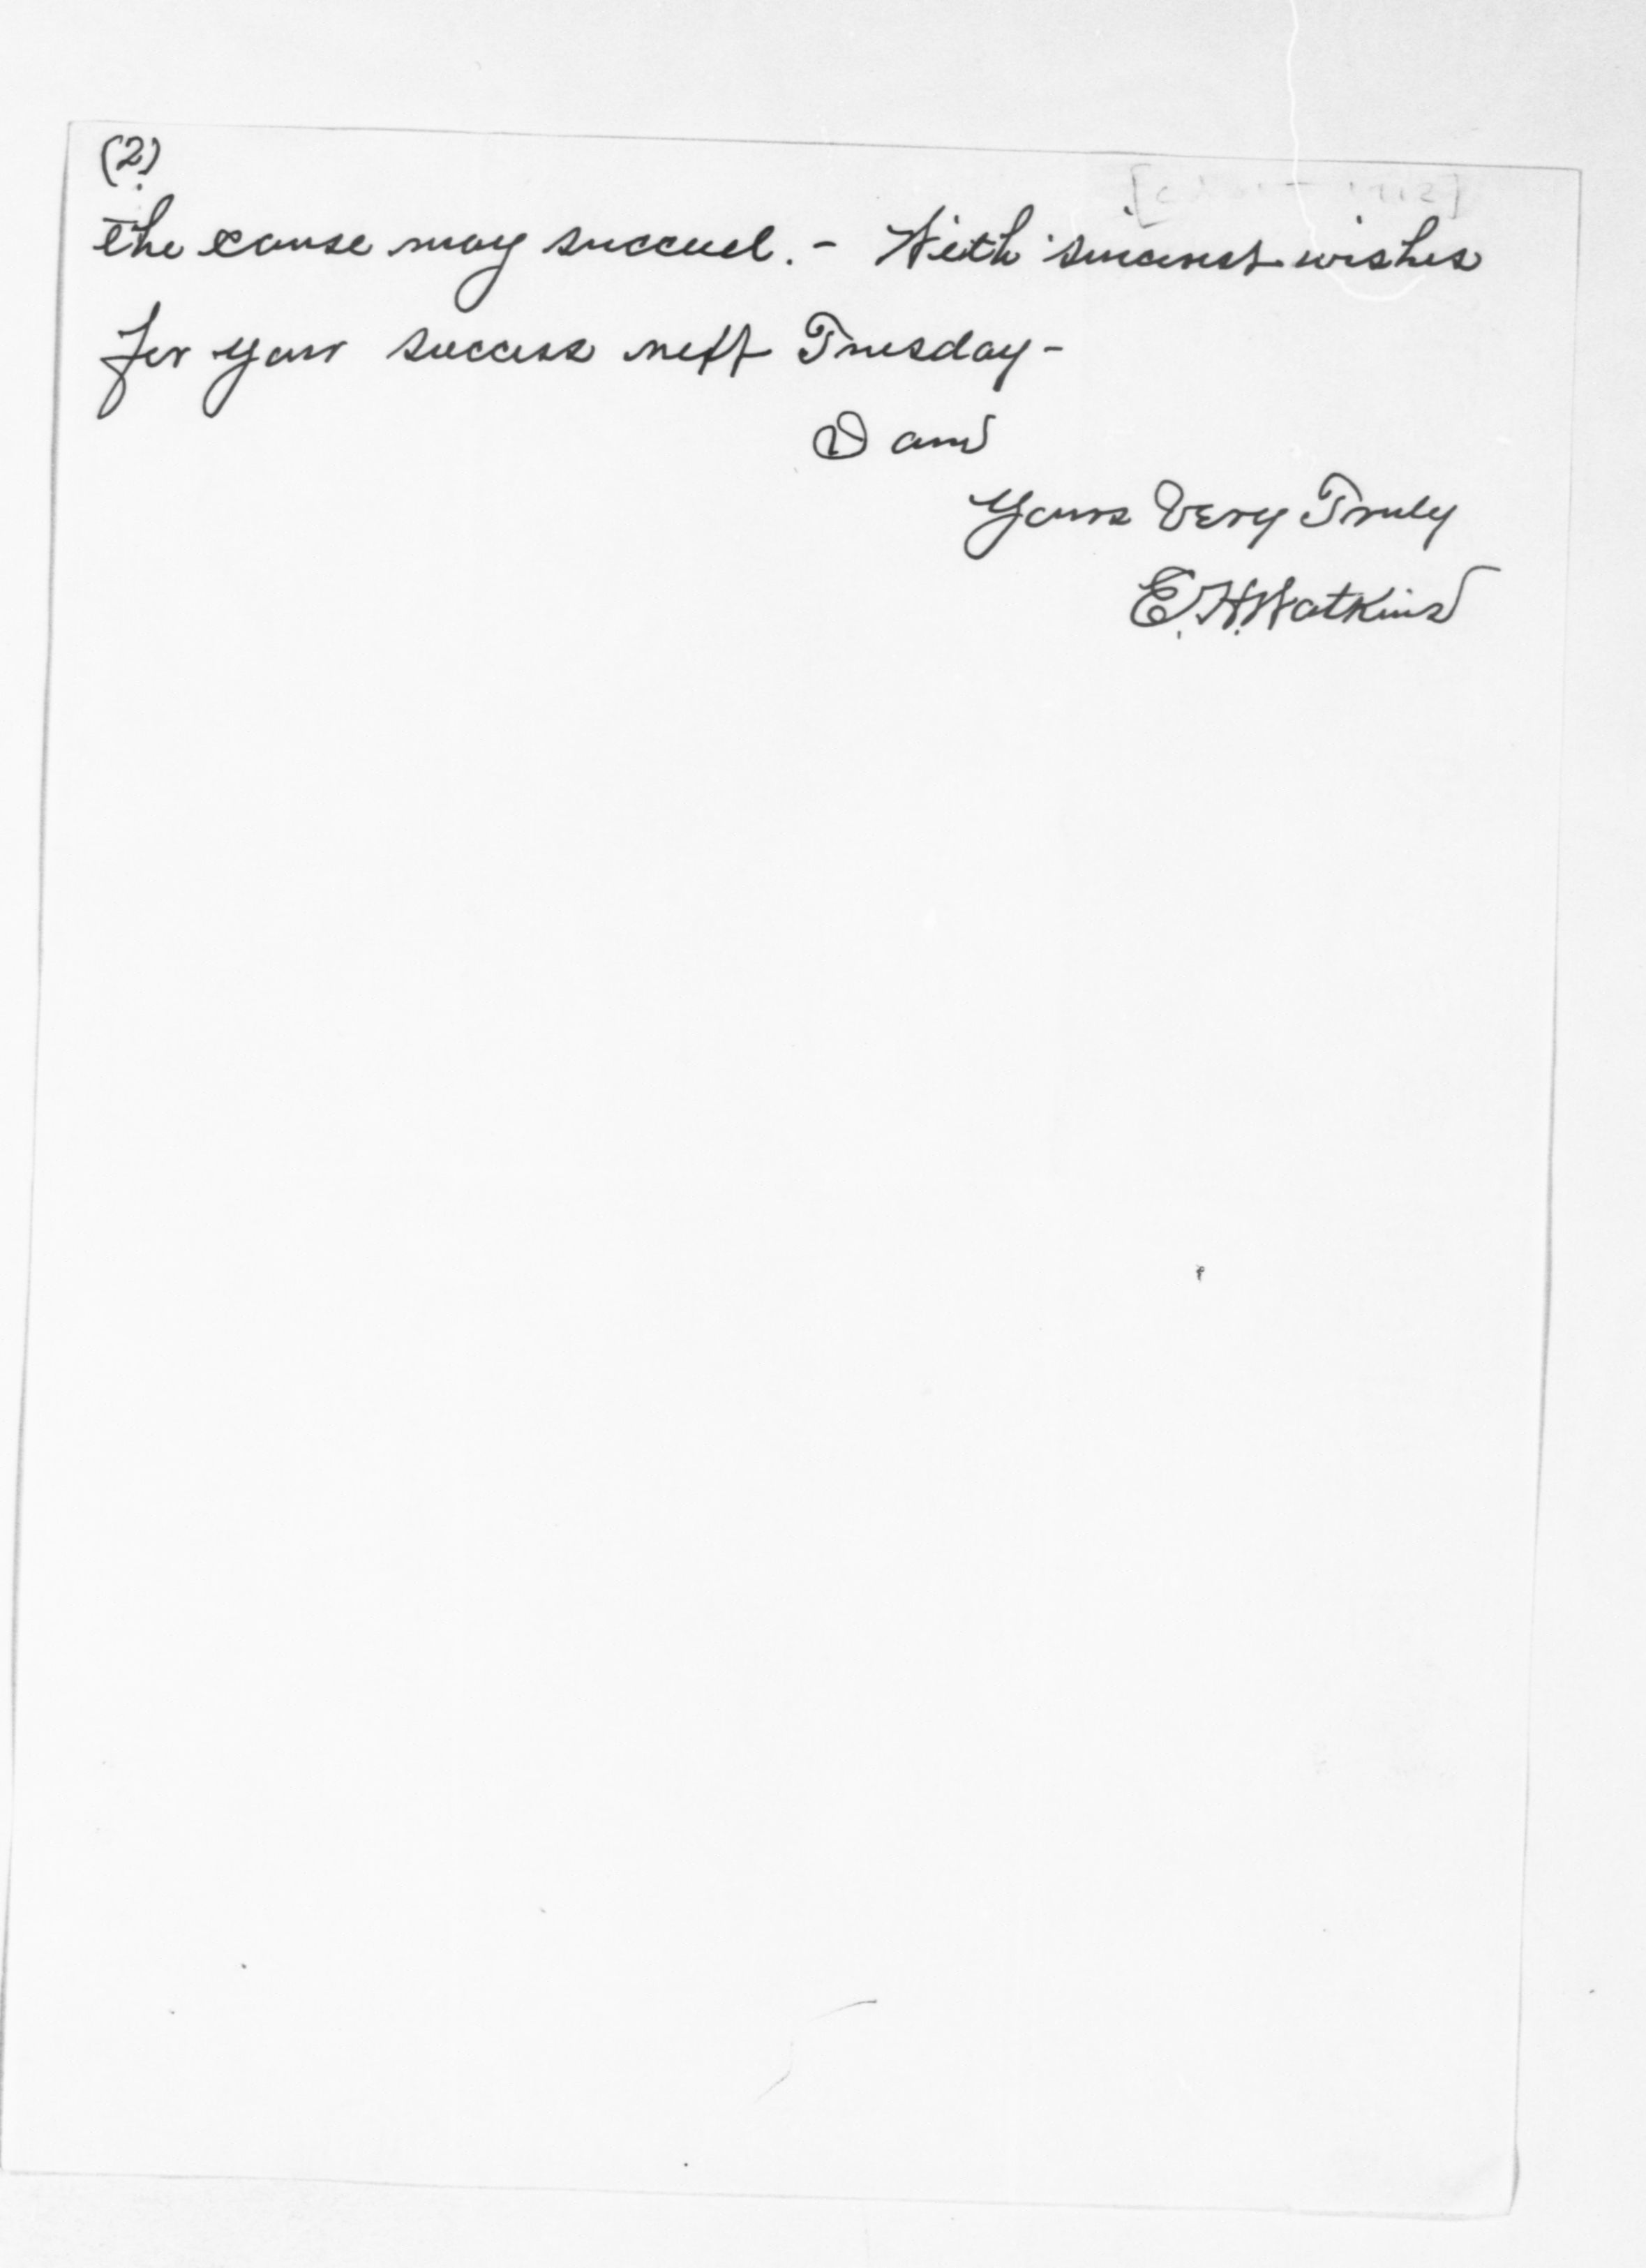 (2)
the cause may succeed. - With sincerest wishes
for your success next Tuesday -
I am
Yours Very Truly
E. H. Watkins